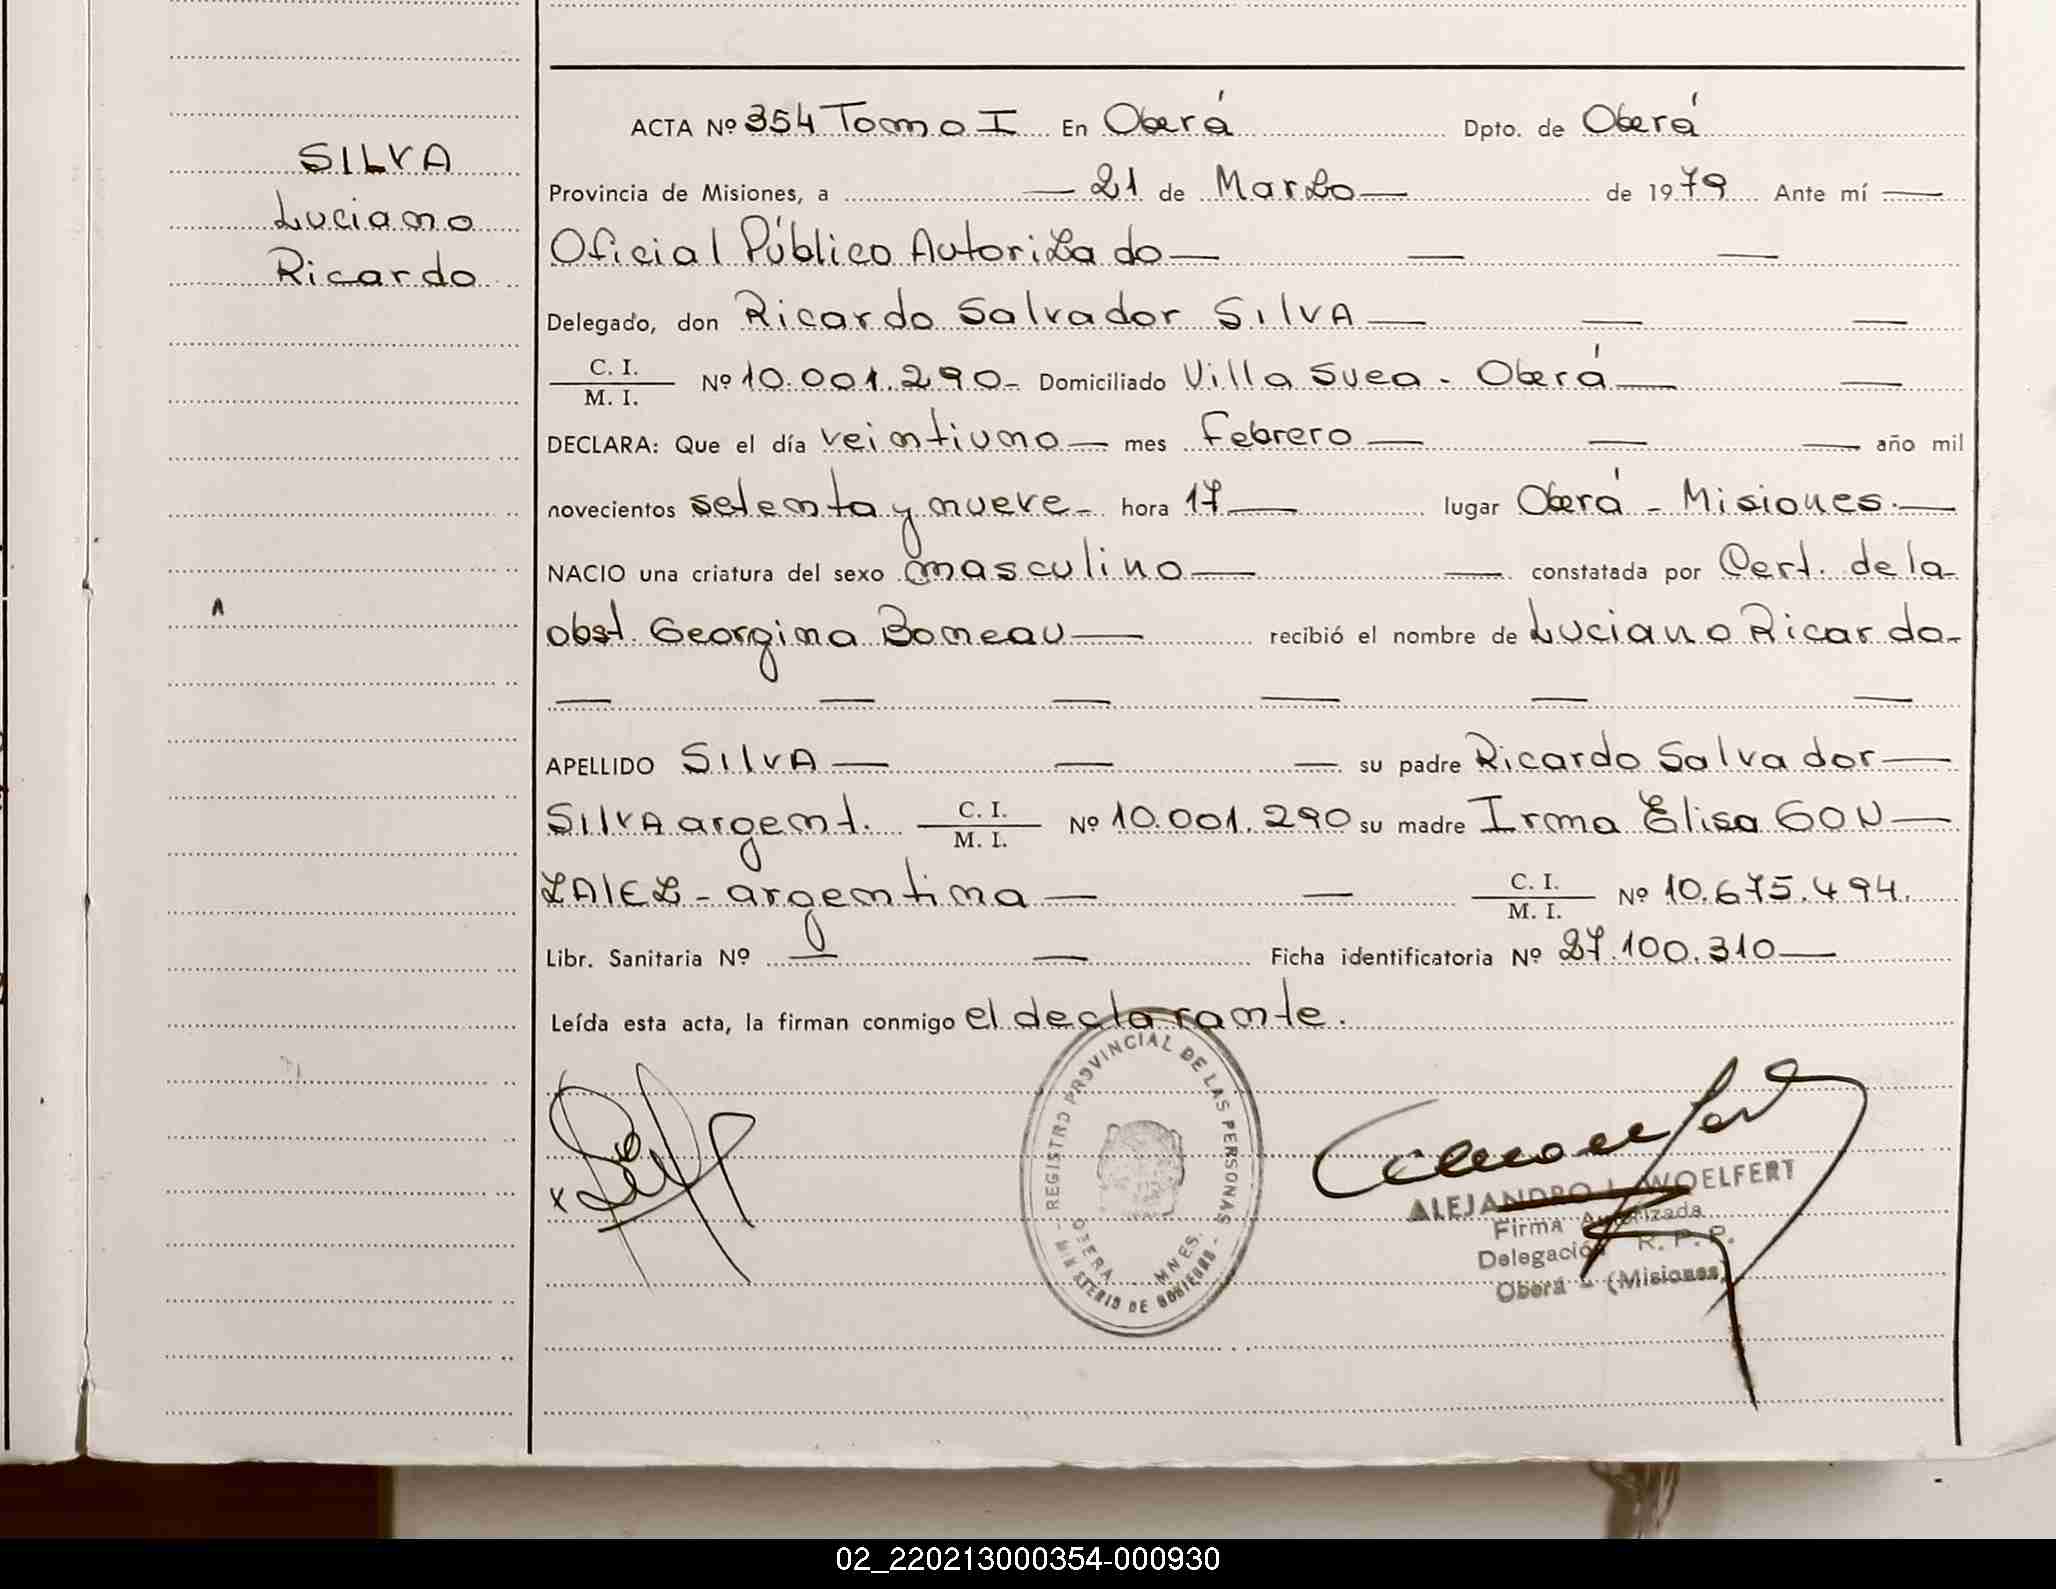 SILVA
Luciano
Ricardo
ACTA Nº 354 Tomo I En Oberá Dpto. de Oberá
Provincia de Misiones, a — 21 de Marzo — de 1979 Ante mí —
Oficial Público Autorizado — — —
Delegado, don Ricardo Salvador SILVA — — —
C. I.
M. I.
Nº 10.001.290 - Domiciliado Villa Svea - Oberá — —
DECLARA: Que el día veintiuno — mes Febrero — — — año mil
novecientos setenta y nueve - hora 17 — lugar Oberá - Misiones. —
NACIO una criatura del sexo masculino — — constatada por Cert. de la
obst. Georgina Boneau — recibió el nombre de Luciano Ricardo -
— — — — — —
APELLIDO SILVA — — — su padre Ricardo Salvador —
SILVA argent. C. I.
M. I.
Nº 10.001.290 su madre Irma Elisa GON —
ZALEZ - argentina — — C. I.
M. I.
Nº 10.675.494.
Libr. Sanitaria Nº — — Ficha identificatoria Nº 27.100.310 —
Leída esta acta, la firman conmigo el declarante.
- REGISTRO PROVINCIAL DE LAS PERSONAS -
OBERA MNES.
MINISTERIO DE GOBIERNO
ALEJANDRO L. WOELFERT
Firma Autorizada
Delegación R. P. P.
Oberá - (Misiones)
02_220213000354-000930